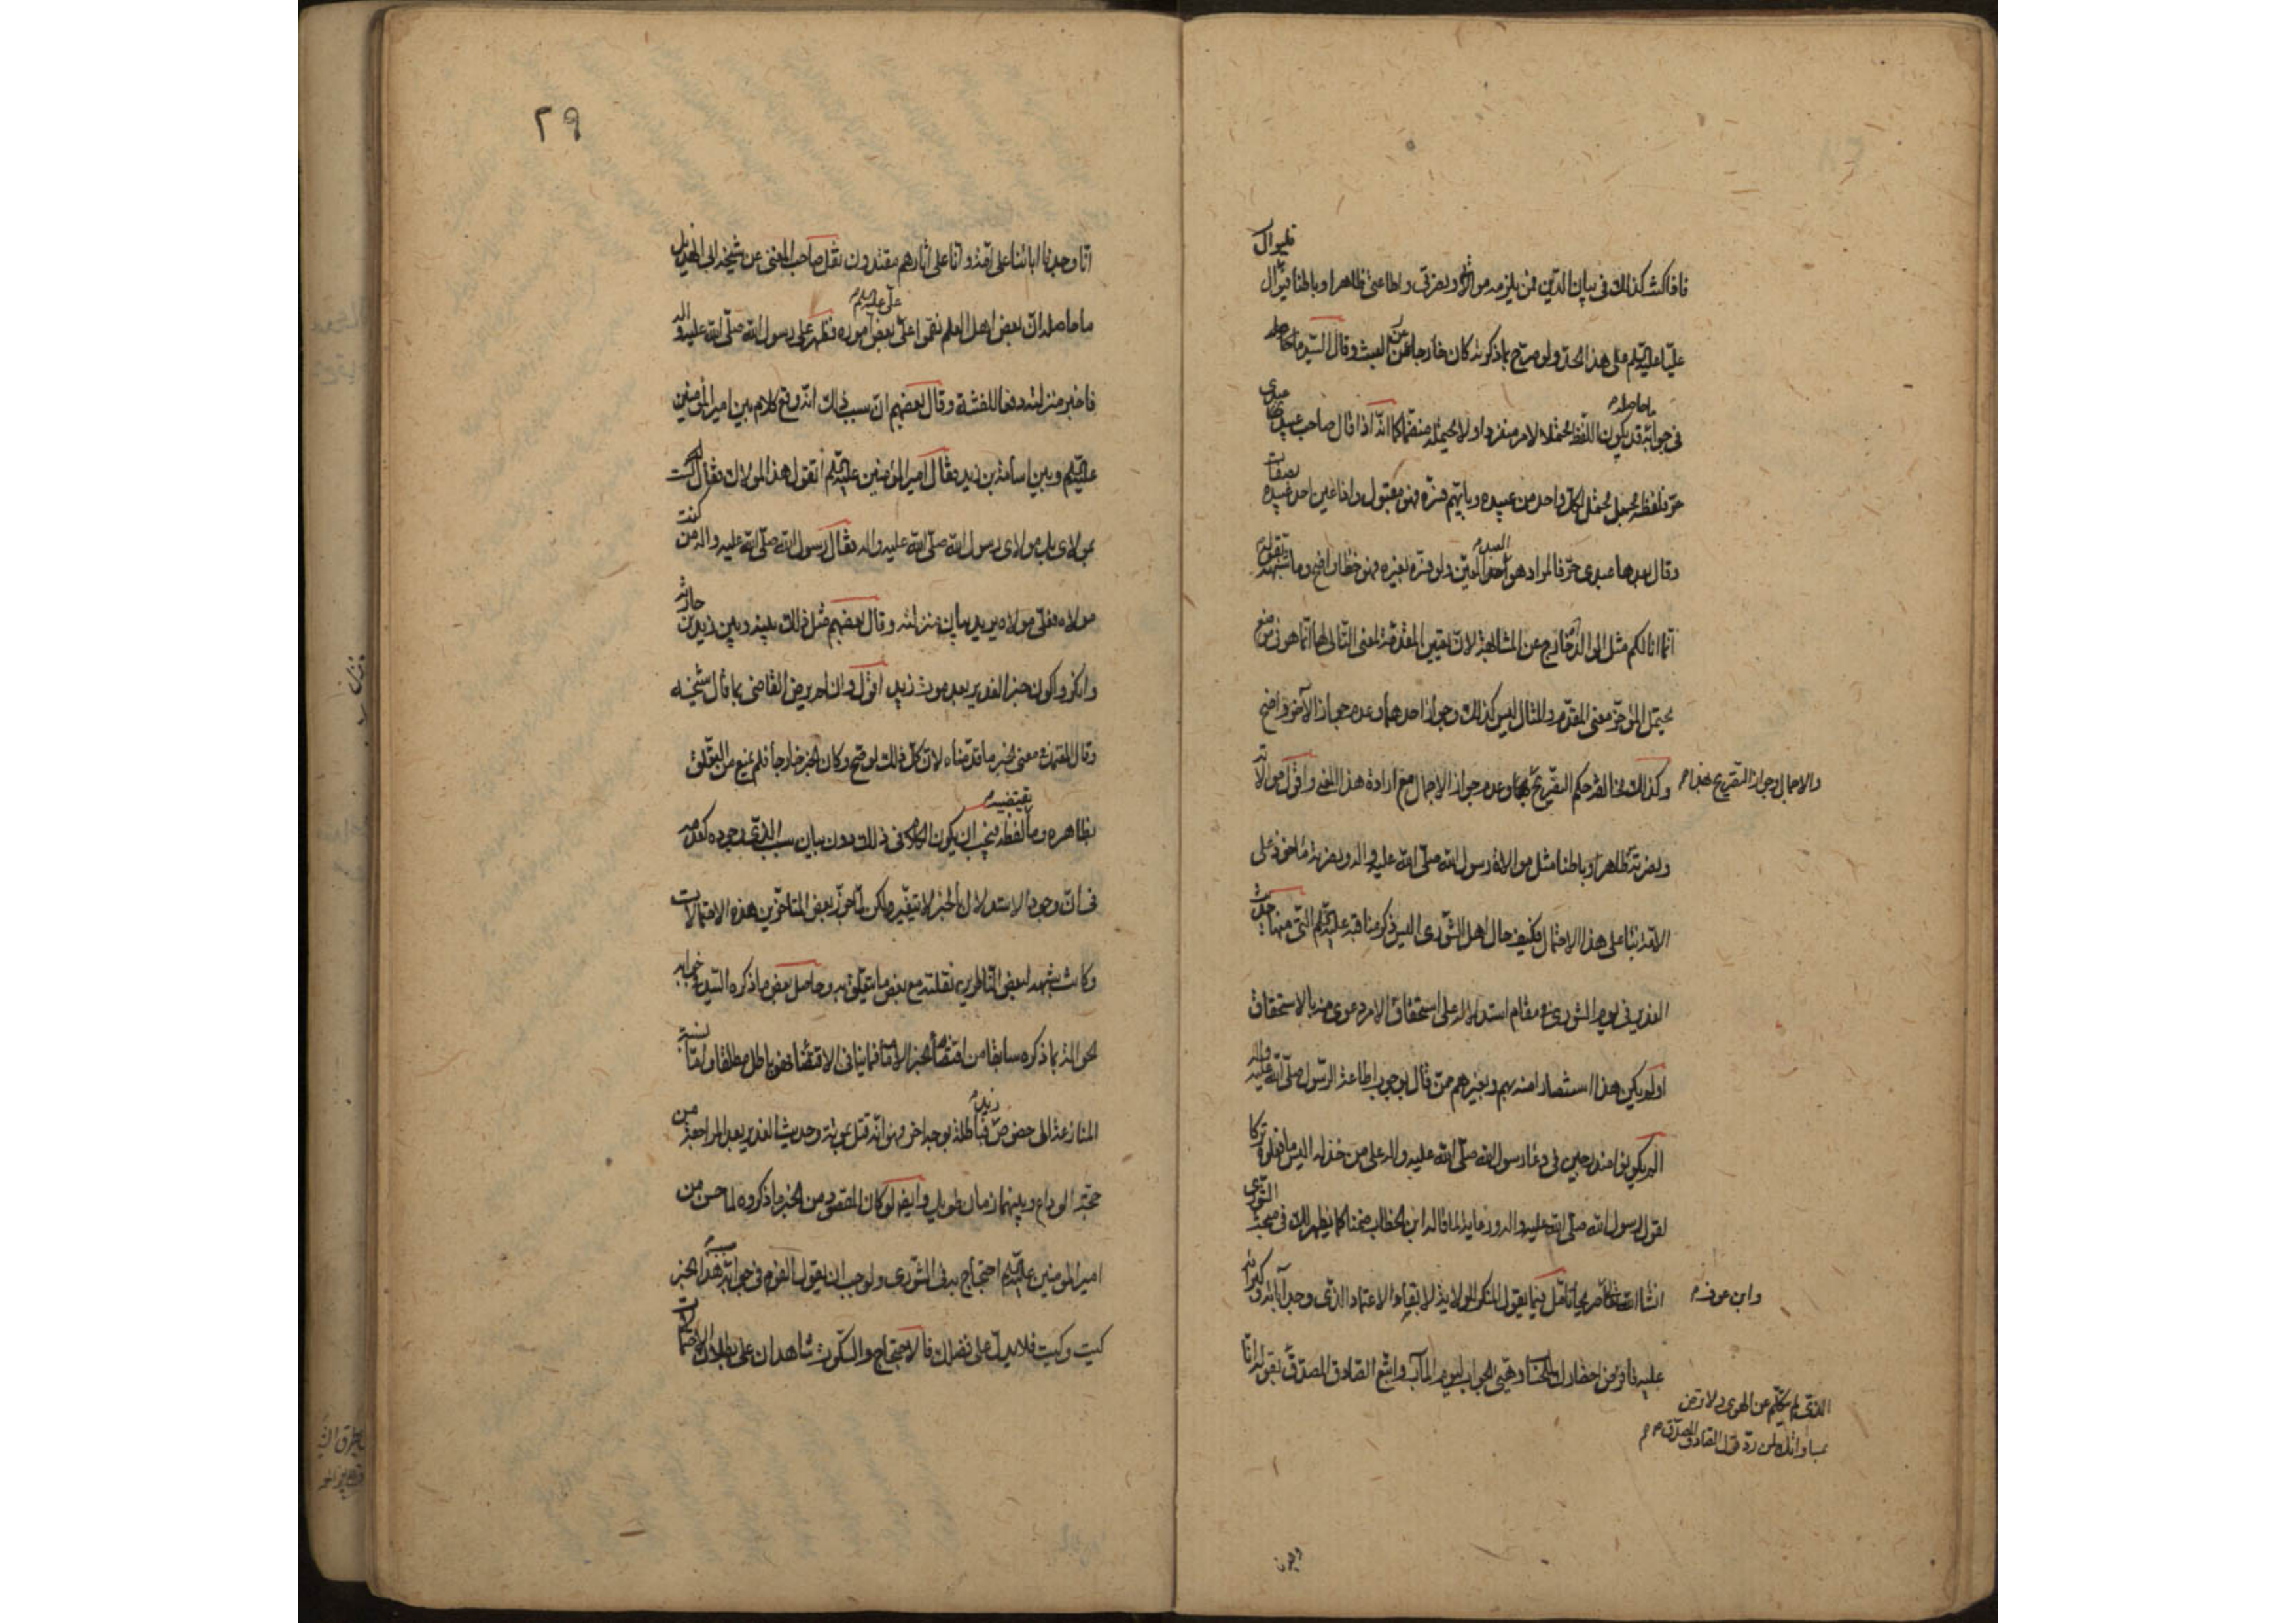 فاذا كنت كذلك في بيان الدين فمن يلزمه موالاة ونصرتي واطاعتي ظاهرا وباطنا فيوال فليوال
عليا عليه السلم على هذا الحد ولو صرح بما ذكرته كان خارجا عن العبث وقال السيد ما حاصله
في جوابه قد يكون اللفظ محتملا لامر منفردا ولا يحتمله منضما كما انه اذا قال صاحب عبيد عبدي
حر فلفظه مجمل محتمل لكل واحد من عبيده وبايهم فسره فهو مقبول واذا عين احد عبيده بصفات
وقال بعدها عبدي حر فالمراد هو العبد المعين ولو فسره بغيره فهو خطأ واضح وما تشبهه بقوله
انما انا لكم مثل الوالد خارج عن المشابهة لان تعيين المقدمة لمعنى التالي لها انما هو في موضع
يحتمل المؤخر معنى المقدم والمثال ليس كذلك وجواز احدهما وعدم جواز الآخر واضح
وكذلك مخالفة حكم التفريع بها وعدم جواز الاجمال مع ارادة هذا المعنى واقول موالاته
والاجمال وجواز التفريع هناك
ونصرته ظاهرا وباطنا مثل موالاة رسول الله صلى الله عليه واله ونصرته مأخوذ على
الامة بناء على هذا الاحتمال فكيف حال اهل الشورى اليس ذكر مناقبه عليه السلم التي منها حديث
الغدير في يوم الشورى في مقام استدلاله على استحقاق الامر دعوى منه بالاستحقاق
اولم يكن هذا استنصارا منه بهم وبغيرهم ممن قال بوجوب اطاعة الرسول صلى الله عليه واله
الم يكونوا مندرجين في دعاء رسول الله صلى الله عليه واله على من خذله اليس ما فعلوه تركا
لقول رسول الله صلى الله عليه واله ورعاية لما قاله ابن الخطاب ضمنا كما يظهر لك في مبحث الشورى
انشاء الله تعالى تأمل فيما يقول المنكر للولاية لابقاء الاعتماد الذي وجد آبائه وكبرائه
وابن عوف
عليه فاذكر احضارك للحساب وهيئ الجواب ليوم المآب واتبع الصادق المصدق بقوله انا
الذي لم يتكلم عن الهوى ولا ترض
بمساواتك لمن رد قول الصادق المصدق
٢٩
انا وجدنا اباءنا على امة وانا على اثارهم مقتدون نقل صاحب المغني عن شيخه ابي الهذيل
ما حاصله ان بعض اهل العلم نقموا على علي عليه السلم بعض اموره فظهر على رسول الله صلى الله عليه واله
فاخبر منزلته دفعا للفتنة وقال بعضهم ان سبب ذلك انه وقع كلام بين امير المؤمنين
عليه السلم وبين اسامة بن زيد فقال امير المؤمنين عليه السلم اتقول هذا لمولاك فقال لست
بمولاي بل مولاي رسول الله صلى الله عليه واله فقال رسول الله صلى الله عليه واله من كنت
مولاه فعلي مولاه يريد بيان منزلته وقال بعضهم مثل ذلك بينه وبين زيد بن حارثه
وانكروا كون خبر الغدير بعد موت زيد اقول والناظر يرض القاضي بما قال شيخه
وقال المعتمد في معنى الخبر ما قدمناه لان كل ذلك لو صح وكان الخبر خارجا فلم يمنع من التعلق
بظاهره وما يقتضيه لفظه فيجب ان يكون الكلام في ذلك دون بيان سبب الذي وجوده كعدمه
في ان وجود الاستدلال بالخبر لا يتغير ولكن لما جوز بعض المتاخرين هذه الاحتمالات
وكانت شبهة لبعض الناظرين نقلته مع بعض ما يتعلق به وحاصل بعض ما ذكره السيد في جوابه
الحوالة بما ذكره سابقا من اقتضاء الخبر الامامة فما ينافي الاقتضاء فهو باطل مطلقا واما نسبة
المنازعة الى خصوص زيد فباطلة بوجه اخر وهو انه قتل بموتة وحديث الغدير بعد المراجعة من
حجة الوداع وبينهما زمان طويل وايضا لو كان المقصود من الخبر ما ذكروه لما حسن من
امير المومنين عليه السلم احتجاج به في الشورى ولوجب ان يقول القوم في جوابه سبب هذا الخبر
كيت وكيت فلا يدل على فضلك فالاحتجاج والسكوت شاهدان على بطلان الاحتمالات